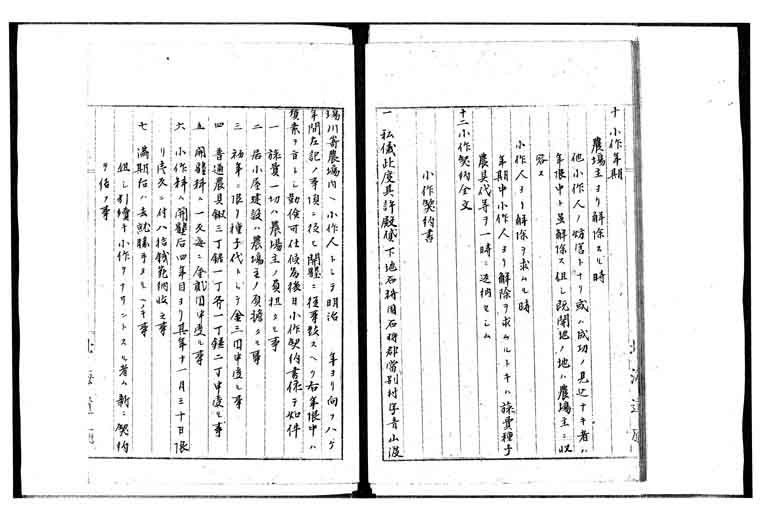 十 小作年期
農場主ヨリ解除スル時
他小作人ノ妨害トナリ或ハ成功ノ見込ナキ者ハ
年限中ト虽解除ス但シ既開地ノ地ハ農場主ニ収
容ス
小作人ヨリ解除ヲ求ムル時
年期中小作人ヨリ解除ヲ求ムルトキハ旅費種子
農具代等ヲ一時ニ返納セシム
十二 小作契約全文
小作契約書
一 私儀此度貴許殿貸下地石狩国石狩郡當別村字青山
場川寄農場内ヘ小作人トシテ明治 年ヨリ向フ八ケ
年間左記ノ事項ニ従ヒ開墾ニ従事致スヘク右年限中ハ
質素ヲ旨トシ勤倹可仕候為後日小作契約書依テ如件
一 旅費一切ハ農場主ノ負担タル事
二 居小屋建設ハ農場主ノ負擔タル事
三 初年ニ限リ種子代トシテ金三円申受ル事
四 普通農具鍬三丁鋸一丁斧一丁鎌二丁申受ル事
五 開墾料ハ一反毎ニ金貳円申受ル事
六 小作料ハ開墾后四年目ヨリ其年十一月三十日限
リ壱反ニ付八拾銭宛納収之事
七 満期后ハ去就勝手タルヘキ事
但シ引續キ小作ヲナサントスル者ハ新ニ契約
ヲ結フ事
北海道廳
北海道廳